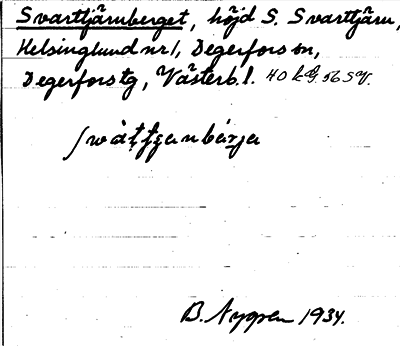 Svarttjärnberget, höjd S. Svarttjärn,
Helsinglund nr 1, Degerfors sn,
Degerfors tg, Västerb. l. 40 kg. 56 SV.
B. Nygren 1934.